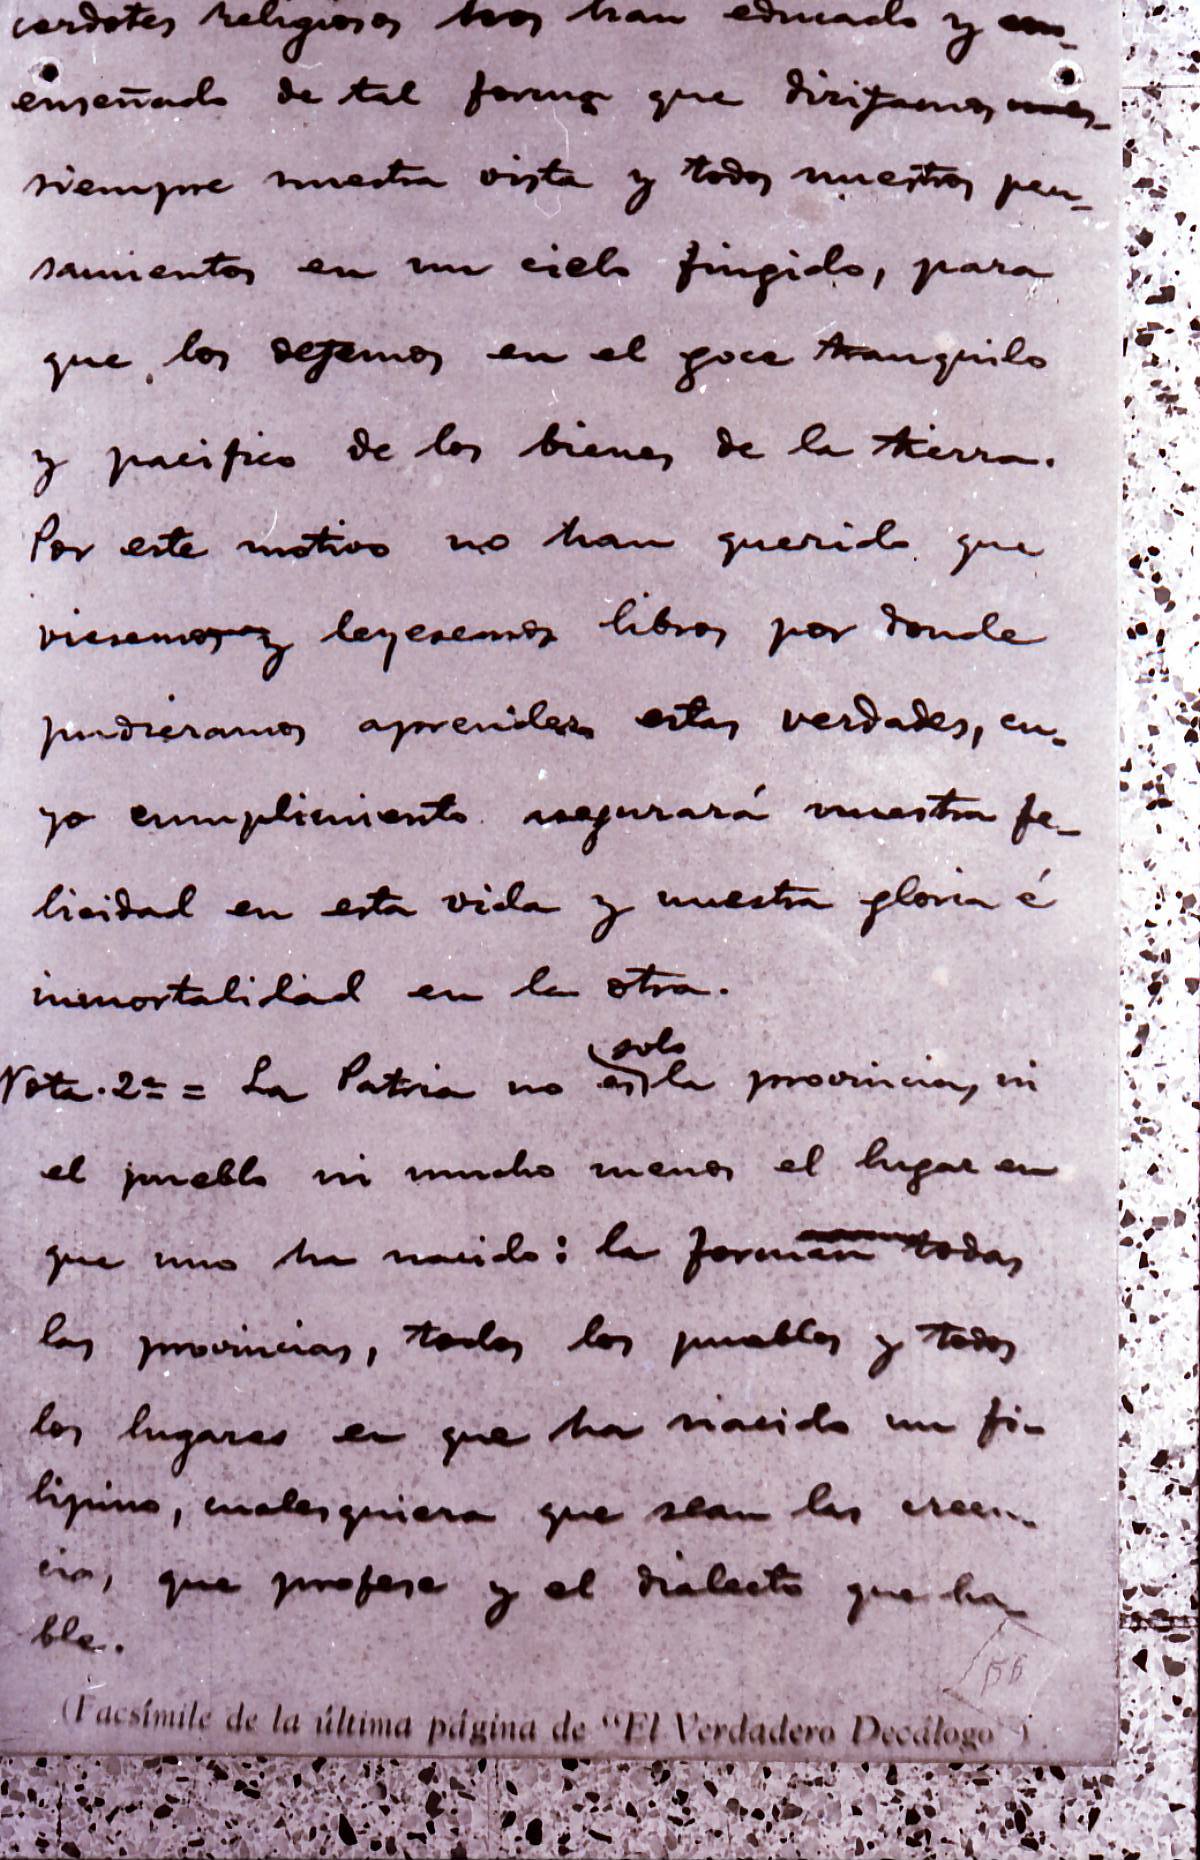 cerdotes religiosos nos han educado y en-
enseñado de tal forma que dirijamos
siempre nuestra vista y todos nuestros pen-
samientos en un cielo fingido, para
que los dejemos en el goce tranquilo
y pacifico de los bienes de la tierra.
Por este motivo no han querido que
viesemos y leyesemos libros por donde
pudieramos aprender estas verdades, cu-
yo cumplimiento asegurará nuestra fe-
licidad en esta vida y nuestra gloria é
inmortalidad en la otra.
solo
Nota. 2ª = La Patria no es la provincia, ni
el pueblo ni mucho menos el lugar en
que uno ha nacido: la forman todas
las provincias, todos los pueblos y todos
los lugares en que ha nacido un fi-
lipino, cualesquiera que sean las creen-
cias, que profese y el dialecto que ha-
ble.
56
(Facsímile de la última página de "El Verdadero Decálogo").